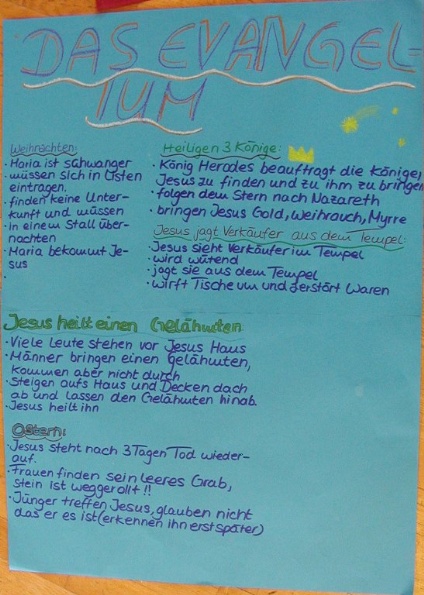 DAS EVANGEL-
IUM
Weihnachten:
• Maria ist schwanger
• müssen sich in Listen
eintragen.
• finden keine Unter-
kunft und müssen
• in einem Stall über-
nachten
• Maria bekommt Je-
sus
•
Heiligen 3 Könige:
• König Herodes beauftragt die Könige,
Jesus zu finden und zu ihm zu bringen
• folgen dem Stern nach Nazareth
• bringen Jesus Gold, Weihrauch, Myrre
Jesus jagt Verkäufer aus dem Tempel:
• Jesus sieht Verkäufer im Tempel
• wird wütend
• jagt sie aus dem Tempel
• wirft Tische um und zerstört Waren
Jesus heilt einen Gelähmten
• Viele Leute stehen vor Jesus Haus
• Männer bringen einen Gelähmten,
kommen aber nicht durch
• Steigen aufs Haus und Decken dach
ab und lassen den Gelähmten hinab.
• Jesus heilt ihn
Ostern:
• Jesus steht nach 3 Tagen Tod wieder-
auf.
• Frauen finden sein leeres Grab,
stein ist weggerollt!!
• Jünger treffen Jesus, glauben nicht
das er es ist (erkennen ihn erst später)